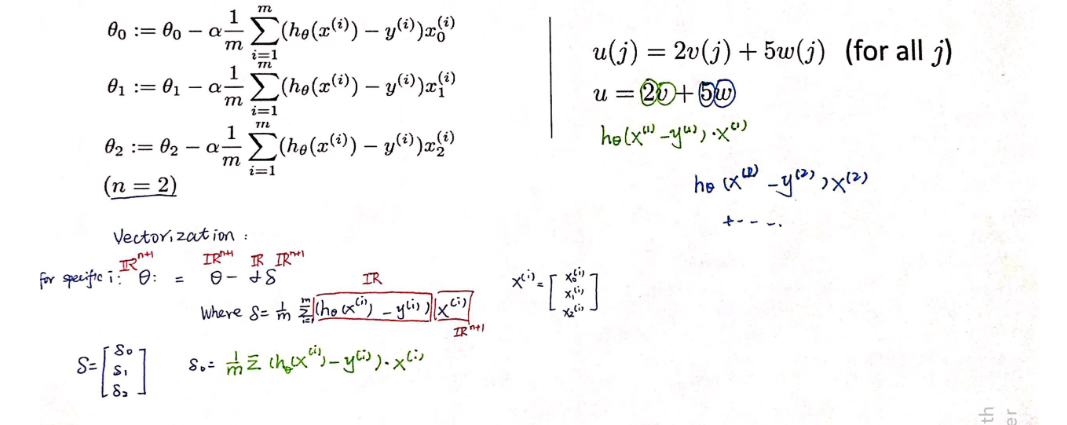 θ₀ := θ₀ − α 1/m Σ_{i=1}^{m} (h_θ(x^{(i)}) − y^{(i)}) x₀^{(i)}
θ₁ := θ₁ − α 1/m Σ_{i=1}^{m} (h_θ(x^{(i)}) − y^{(i)}) x₁^{(i)}
θ₂ := θ₂ − α 1/m Σ_{i=1}^{m} (h_θ(x^{(i)}) − y^{(i)}) x₂^{(i)}
(n = 2)
u(j) = 2v(j) + 5w(j) (for all j)
u = 2v + 5w
h_θ(x^{(1)} − y^{(1)}) · x^{(1)}
h_θ(x^{(2)} − y^{(2)}) x^{(2)}
+ - - - .
Vectorization :
ℝ^{n+1} ℝ^{n+1} ℝ ℝ^{n+1}
for specific i: θ: = θ − αδ
ℝ
Where δ = 1/m Σ_{i=1}^{m} (h_θ(x^{(i)}) − y^{(i)}) x^{(i)}
ℝ^{n+1}
x^{(i)} = [x₀^{(i)}
x₁^{(i)}
x₂^{(i)}]
δ = [δ₀
δ₁
δ₂]
δ₀ = 1/m Σ (h_θ(x^{(i)}) − y^{(i)}) · x^{(i)}
th
er